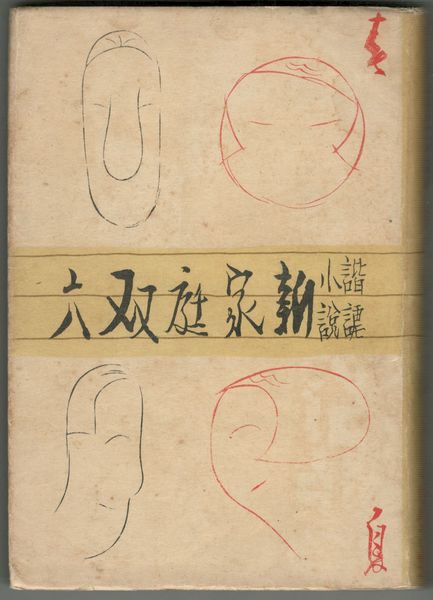 春
諧謔
小説
新家庭双六
夏